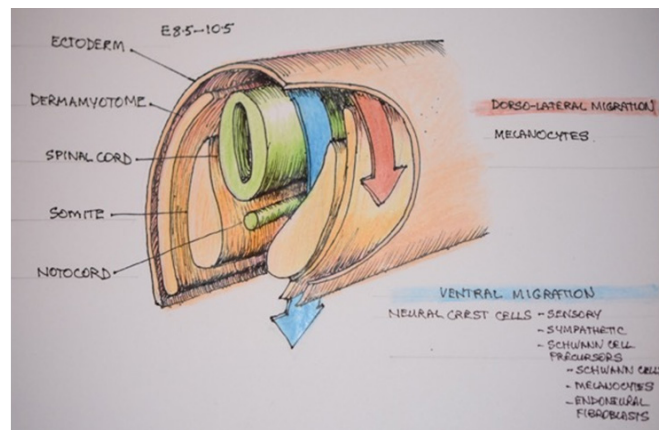 E8.5-10.5
ECTODERM
DERMAMYOTOME
SPINAL CORD
SOMITE
NOTOCORD
DORSO-LATERAL MIGRATION
MELANOCYTES
VENTRAL MIGRATION
NEURAL CREST CELLS - SENSORY
- SYMPATHETIC
- SCHWANN CELL
PRECURSORS
- SCHWANN CELL
- MELANOCYTES
- ENDONEURAL
FIBROBLASTS